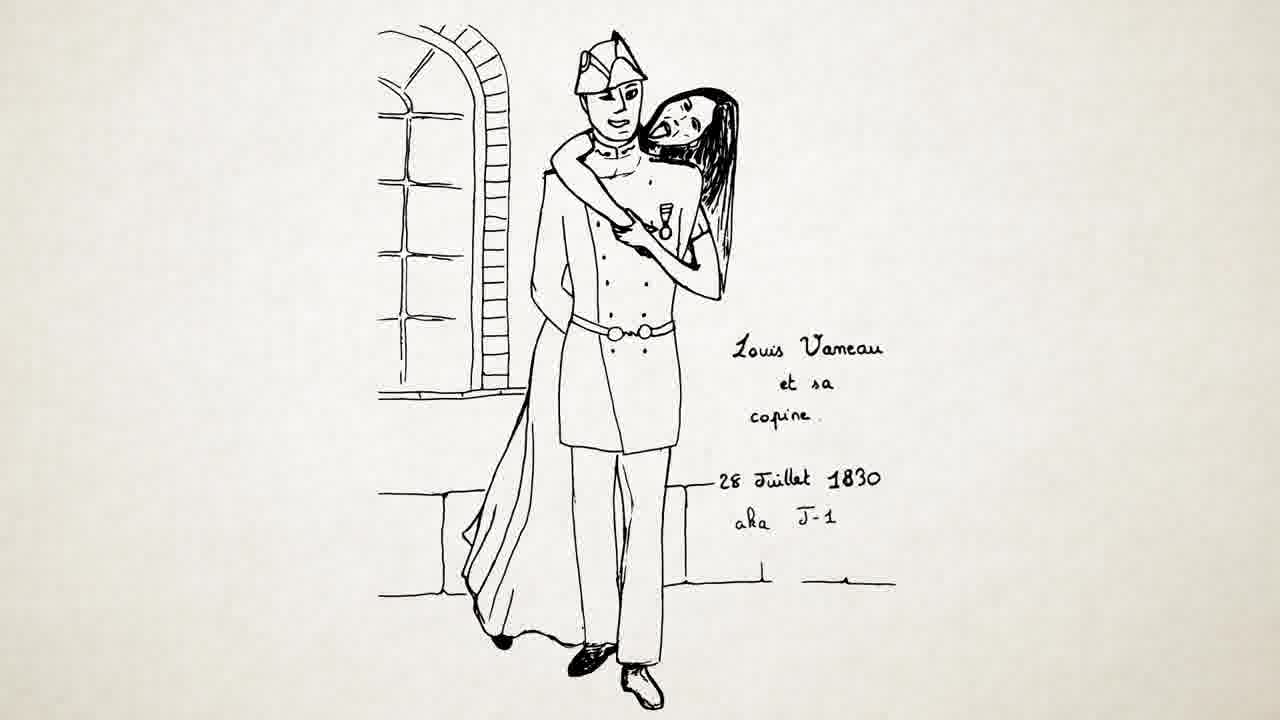 Louis Vaneau
et sa
copine.
28 Juillet 1830
aka J-1